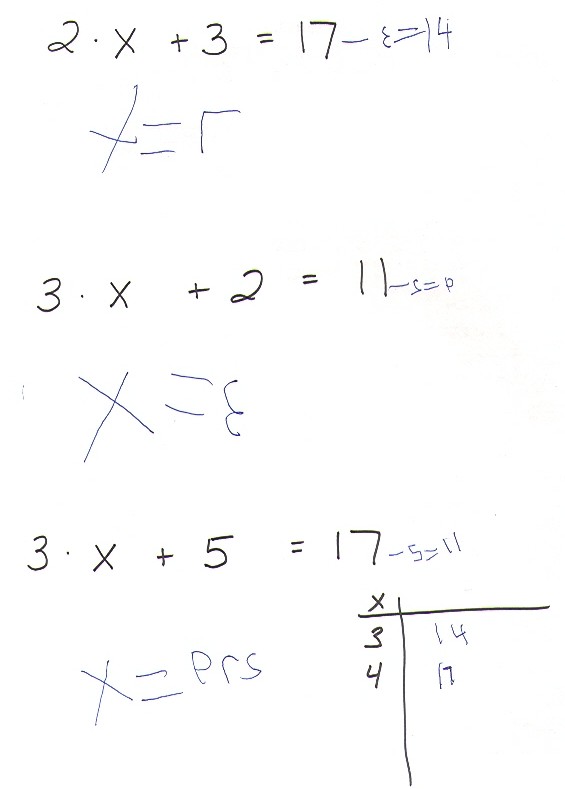 2 · x + 3 = 17 - 3=14
x = 7
3 · x + 2 = 11 - 2=9
x = 3
3 · x + 5 = 17 - 5=11
x
3 14
4 17
x =